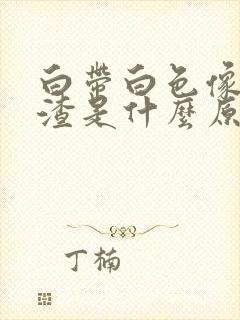 白带白色像
渣是什麼原
丁楠